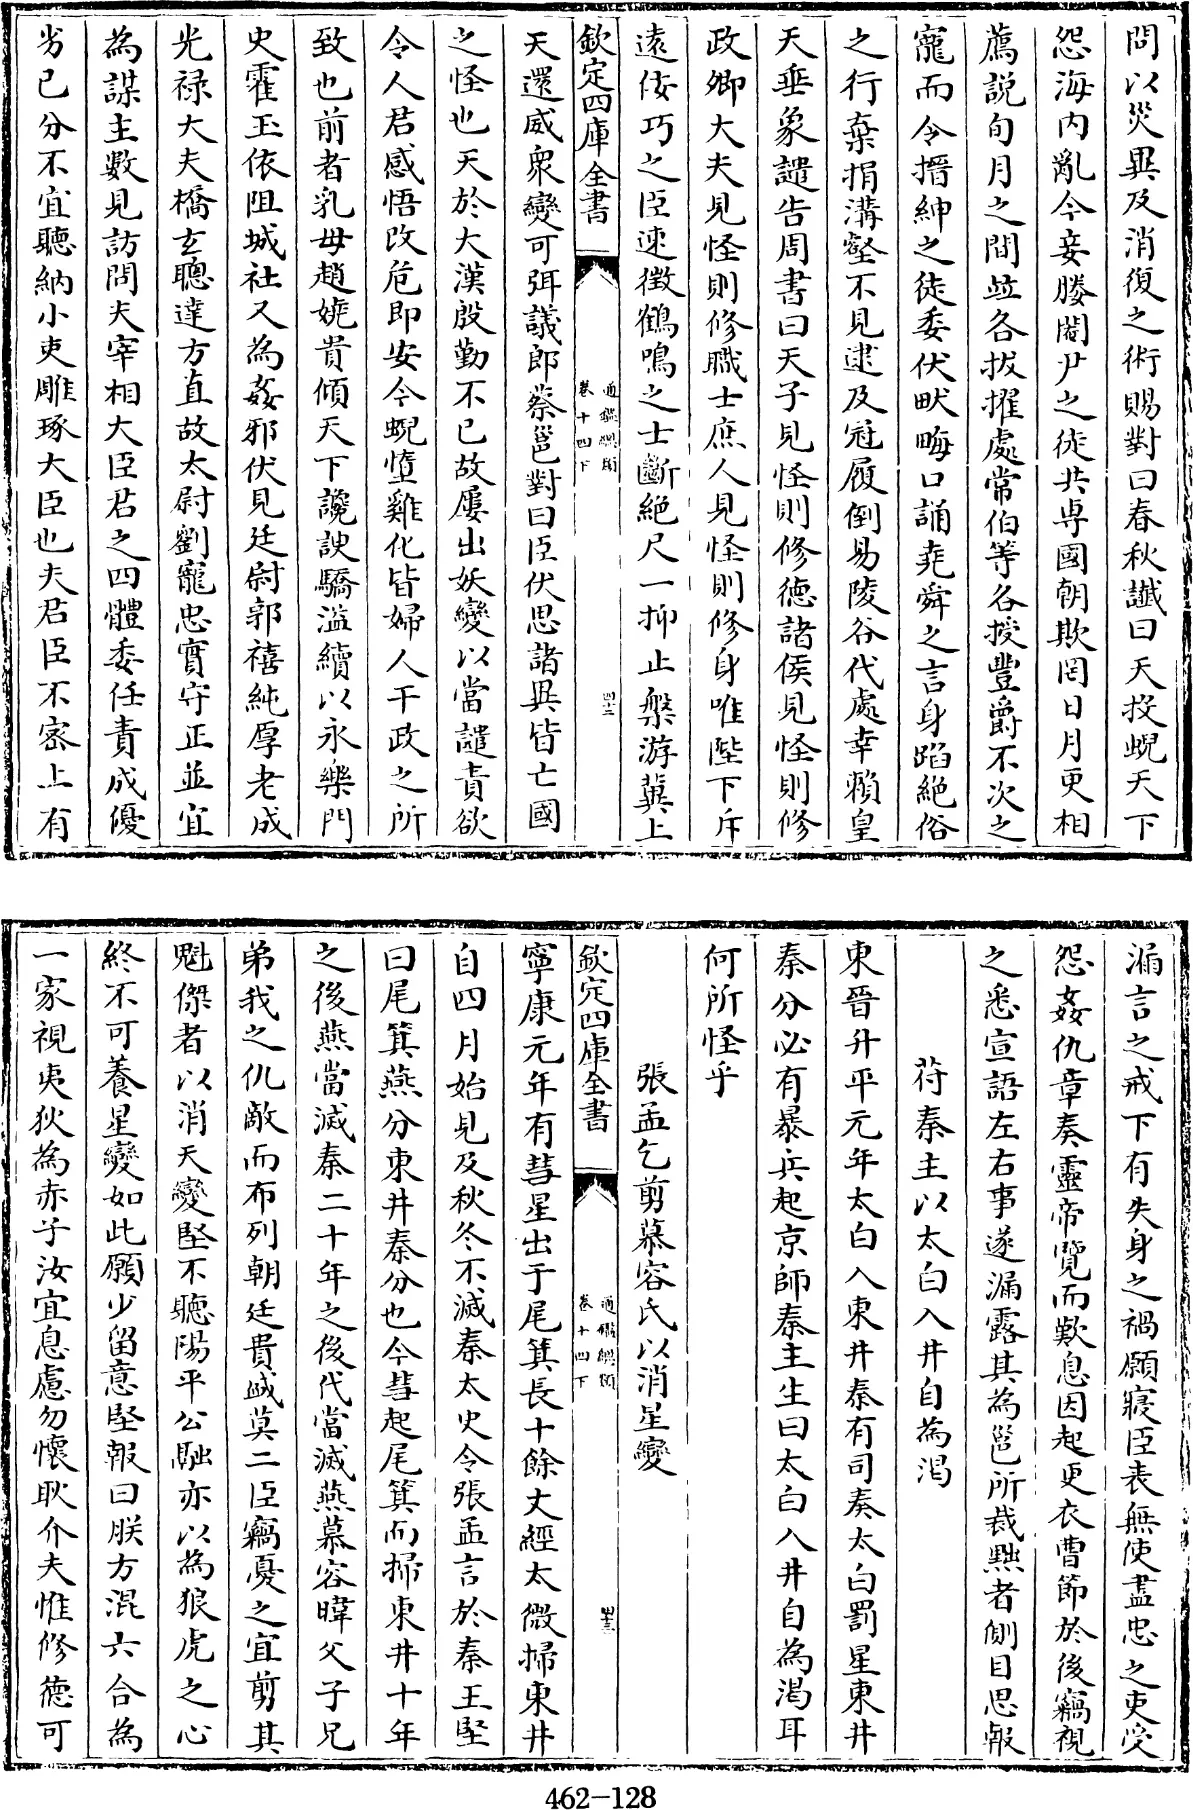 問以災異及消復之術賜對曰春秋讖曰天投蜺天下
怨海内亂今妾媵閹尹之徒共專國朝欺罔日月更相
薦説旬月之間竝各拔擢處常伯等各授豐爵不次之
寵而令搢紳之徒委伏畎畮口誦堯舜之言身蹈絶俗
之行棄捐溝壑不見逮及冠履倒易陵谷代處幸賴皇
天垂象譴告周書曰天子見怪則修德諸侯見怪則修
政卿大夫見怪則修職士庶人見怪則修身唯陛下斥
遠佞巧之臣速徴鶴鳴之士斷絶尺一抑止槃游冀上
欽定四庫全書
通鑑總類
卷十四下
四十二
天還威衆變可弭議郎蔡邕對曰臣伏思諸異皆亡國
之怪也天於大漢殷勤不已故屢出妖變以當譴責欲
令人君感悟改危即安今蜺墮雞化皆婦人干政之所
致也前者乳母趙嬈貴傾天下讒諛驕溢續以永樂門
史霍玉依阻城社又為姦邪伏見廷尉郭禧純厚老成
光禄大夫橋玄聰達方直故太尉劉寵忠實守正並宜
為謀主數見訪問夫宰相大臣君之四體委任責成優
劣已分不宜聽納小吏雕琢大臣也夫君臣不宻上有
漏言之戒下有失身之禍願寢臣表無使盡忠之吏受
怨姦仇章奏靈帝覽而歎息因起更衣曹節於後竊視
之悉宣語左右事遂漏露其為邕所裁黜者側目思報
苻秦主以太白入井自為渇
東晉升平元年太白入東井秦有司奏太白罰星東井
秦分必有暴兵起京師秦主生曰太白入井自為渇耳
何所怪乎
張孟乞剪慕容氏以消星變
欽定四庫全書
通鑑總類
卷十四下
四十三
寧康元年有彗星出于尾箕長十餘丈經太微掃東井
自四月始見及秋冬不滅秦太史令張孟言於秦王堅
曰尾箕燕分東井秦分也今彗起尾箕而掃東井十年
之後燕當滅秦二十年之後代當滅燕慕容暐父子兄
弟我之仇敵而布列朝廷貴盛莫二臣竊憂之宜剪其
魁傑者以消天變堅不聽陽平公融亦以為狼虎之心
終不可養星變如此願少留意堅報曰朕方混六合為
一家視夷狄為赤子汝宜息慮勿懷耿介夫惟修德可
462-128